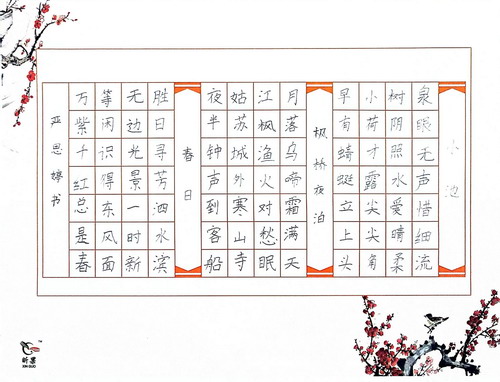 小池
泉眼无声惜细流
树阴照水爱晴柔
小荷才露尖尖角
早有蜻蜓立上头
枫桥夜泊
月落乌啼霜满天
江枫渔火对愁眠
姑苏城外寒山寺
夜半钟声到客船
春日
胜日寻芳泗水滨
无边光景一时新
等闲识得东风面
万紫千红总是春
严思婷书
XIN GUO